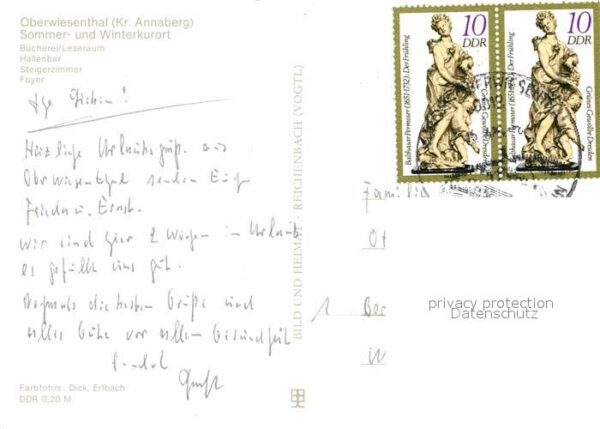 Oberwiesenthal (Kr. Annaberg)
Sommer- und Winterkurort
Bücherei/Leseraum
Hallenbar
Steigerzimmer
Foyer
Herzliche Urlaubsgrüße aus
Oberwiesenthal senden Euch
Frieda u. Ernst.
Wir sind hier 2 Wochen im Urlaub
es gefällt uns gut.
Nochmals die besten Grüße und
alles Gute vor allem Gesundheit
Ernst
Farbfotos: Dick, Erlbach
DDR 0,20 M
BILD UND HEIMAT REICHENBACH (VOGTL)
10
DDR
Balthasar Permoser (1651-1732) · Der Frühling
Grünes Gewölbe Dresden
10
DDR
Balthasar Permoser (1651-1732) · Der Frühling
Grünes Gewölbe Dresden
Familie
1
privacy protection
Datenschutz